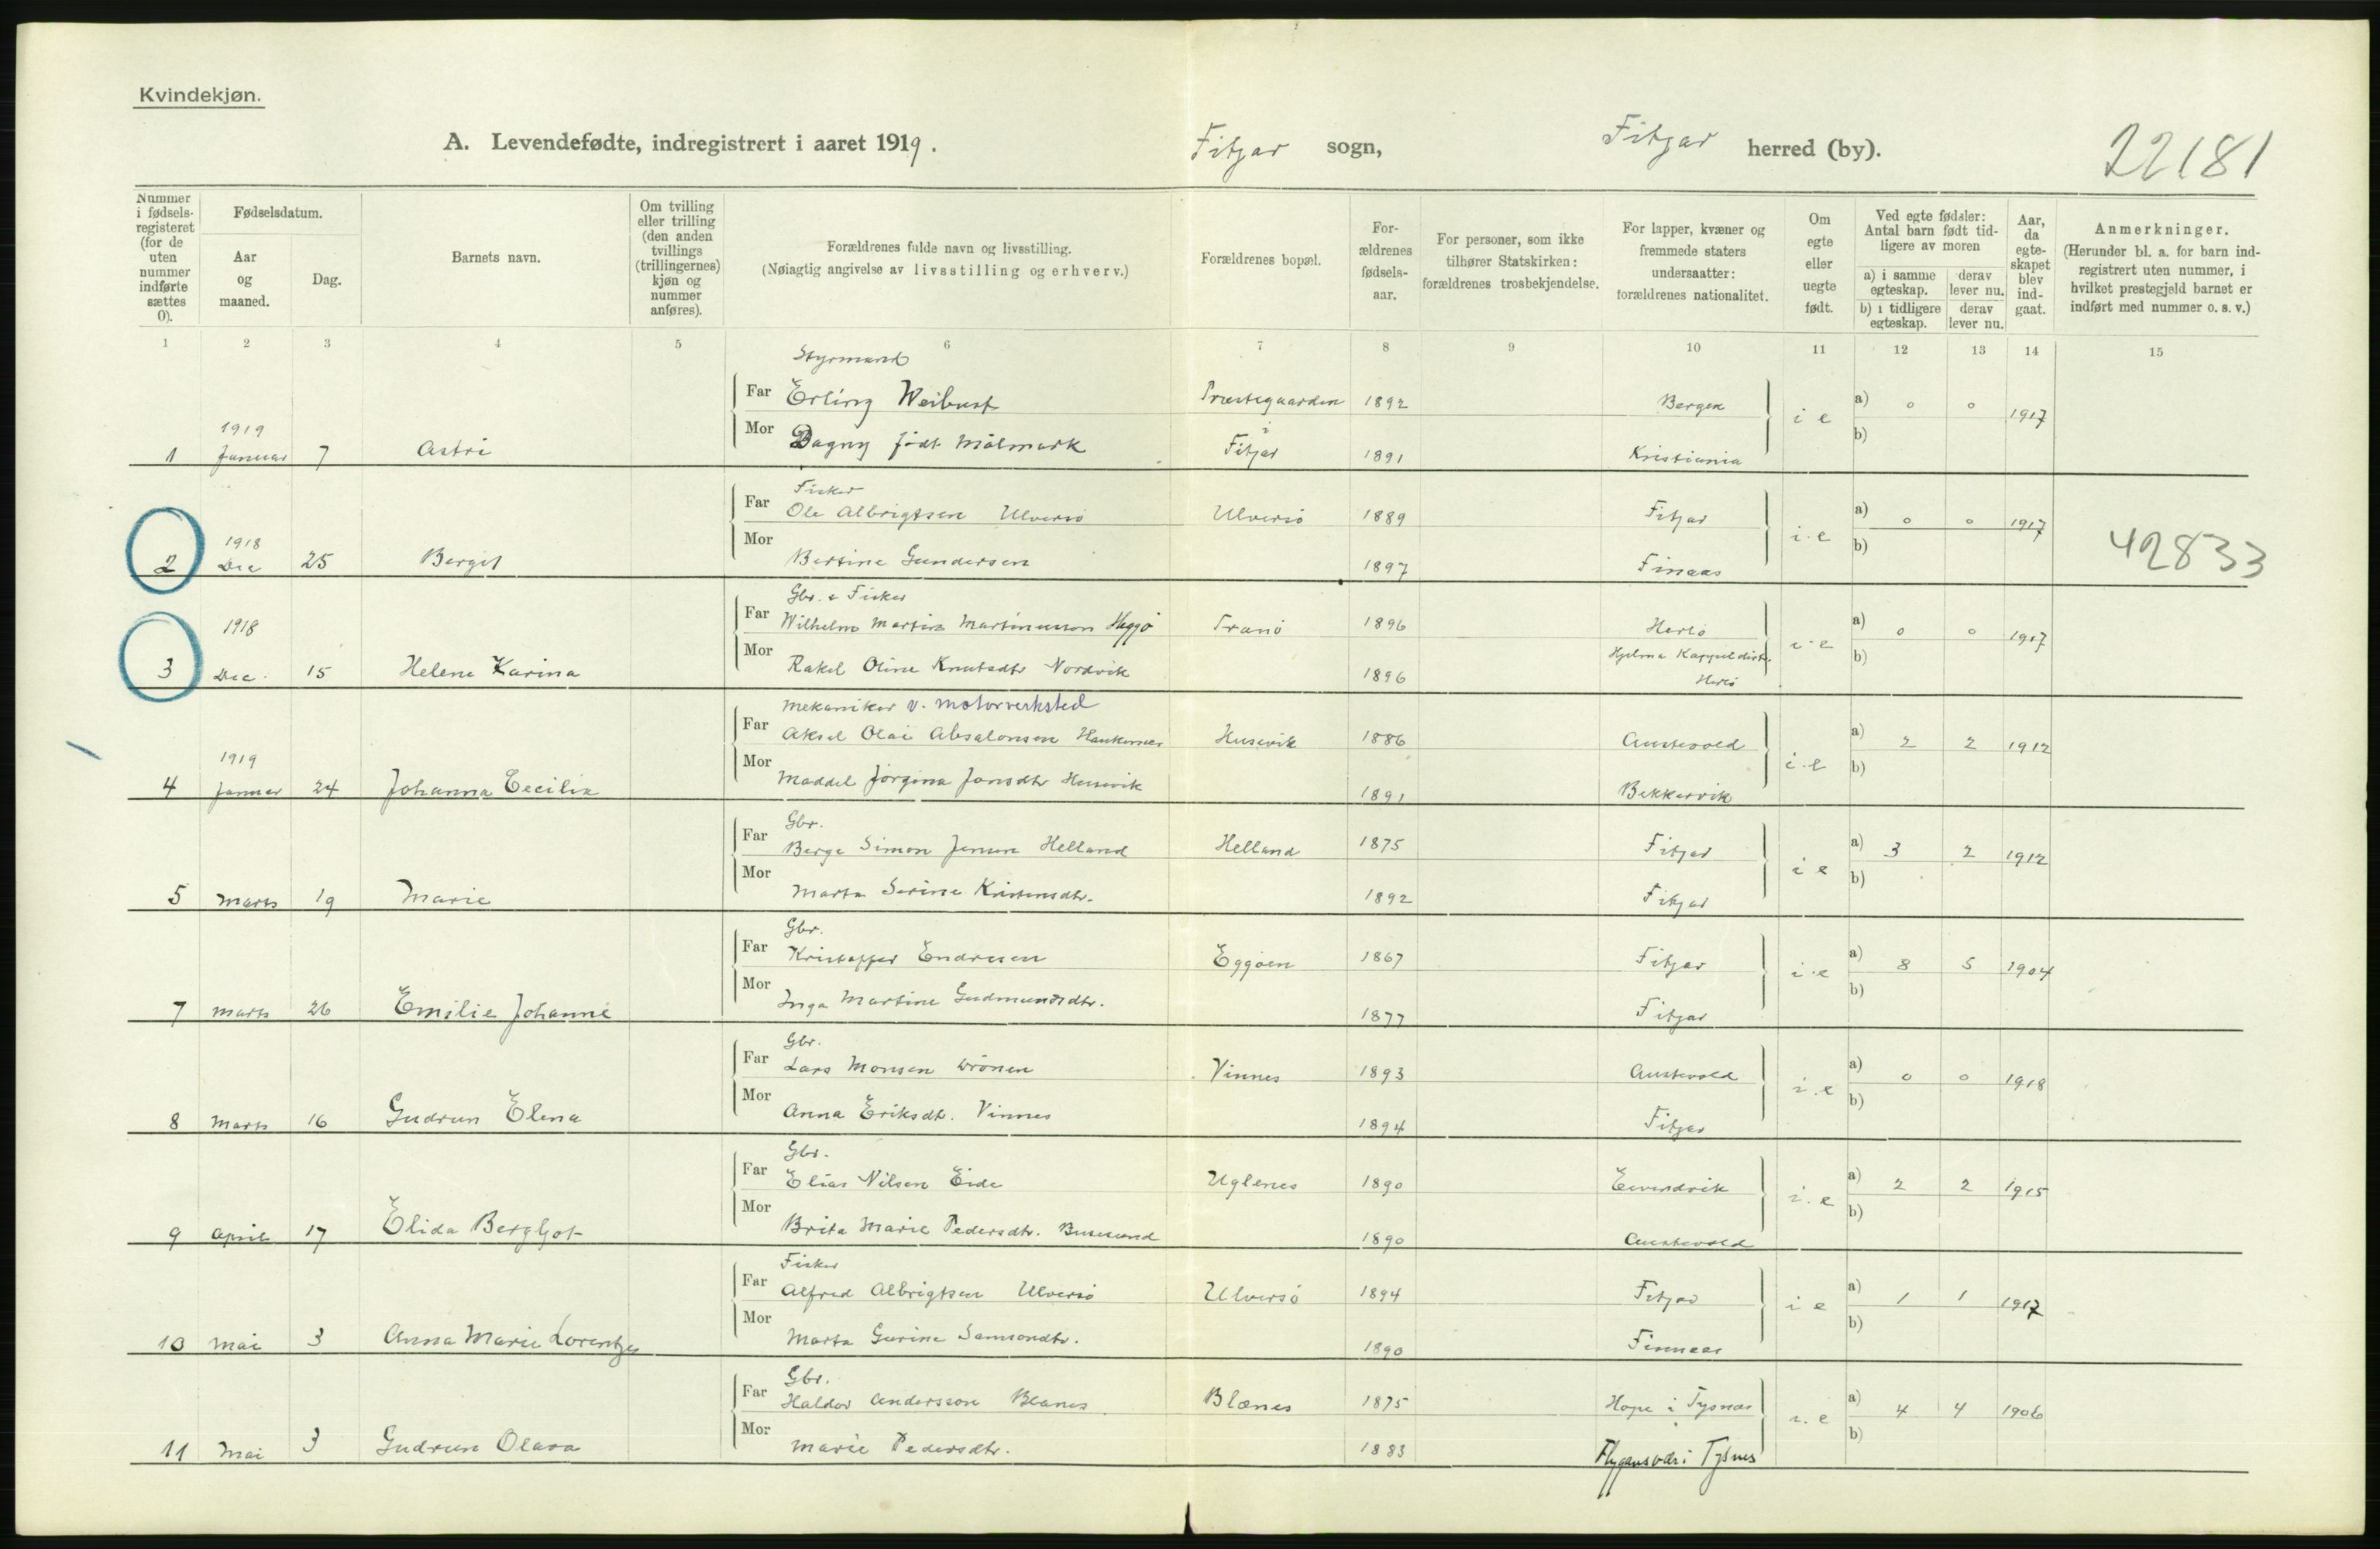 Kvindekjøn.
A. Levendefødte, indregistrert i aaret 1919.
Fitjar sogn, Fitjar herred (by).
22181
Nummer i fødsels-registeret (for de uten nummer indførte sættes 0).
Fødselsdatum.
Aar og maaned.
Dag.
Barnets navn.
Om tvilling eller trilling (den anden tvillings (trillingernes) kjøn og nummer anføres).
Forældrenes fulde navn og livsstilling.
(Nøiagtig angivelse av livsstilling og erhverv.)
Forældrenes bopæl.
For-ældrenes fødsels-aar.
For personer, som ikke tilhører Statskirken: forældrenes trosbekjendelse.
For lapper, kvæner og fremmede staters undersaatter: forældrenes nationalitet.
Om egte eller uegte født.
Ved egte fødsler: Antal barn født tid-ligere av moren
a) i samme egteskap.
derav lever nu.
b) i tidligere egteskap.
derav lever nu.
Aar, da egte-skapet blev ind-gaat.
Anmerkninger.
(Herunder bl. a. for barn ind-registrert uten nummer, i hvilket prestegjeld barnet er indført med nummer o. s. v.)
1 2 3 4 5 6 7 8 9 10 11 12 13 14 15
Styrmand
Far Erling Weibust Præstegaarden 1892 Bergen i e a) 0 0 1917
Mor Dagny født Malmark i Fitjar 1891 Kristiania b)
1 1919 Januar 7 Astri
Fisker
Far Ole Albrigtsen Ulversø Ulversö 1889 Fitjar i.e a) 0 0 1917
Mor Bertine Gundersen 1897 Finaas b)
2 1918 Dec 25 Bergit 42833
Gbr. & Fisker
Far Wilhelm Martin Martinusson Hæggö Tranö 1896 Herlö i e a) 0 0 1917
Mor Rakel Oline Knutsdtr Nordvik 1896 Hjelma Kappeldistr. Herlö b)
3 1918 Dec. 15 Helene Karina
Mekaniker v. motorverksted
Far Aksel Olai Absalonsen Haukanes Husevik 1886 Austevold i.e a) 2 2 1912
Mor Maddel Jørgina Jonsdtr Husevik 1891 Bekkervik b)
4 1919 Januar 24 Johanna Cecilia
Gbr.
Far Berge Simon Jensen Helland Helland 1875 Fitjar i e a) 3 2 1912
Mor Marta Serine Kristensdtr. 1892 Fitjar b)
5 Marts 19 Marie
Gbr.
Far Kristoffer Endresen Eggøen 1867 Fitjar i.e a) 8 5 1904
Mor Inga Martine Gudmundsdtr. 1877 Fitjar b)
7 Marts 26 Emilie Johanne
Gbr.
Far Lars Monsen Drönen Vinnes 1893 Austevold i.e a) 0 0 1918
Mor Anna Eriksdtr. Vinnes 1894 Fitjar b)
8 Marts 16 Gudrun Elena
Gbr.
Far Elias Nilsen Eide Uglenes 1890 Eivindvik i.e a) 2 2 1915
Mor Brita Marie Pedersdtr. 1890 Austevold b)
9 April 17 Elida Bergljot
Fisker
Far Alfred Albrigtsen Ulversö Ulversö 1894 Fitjar i e a) 1 1 1917
Mor Marta Gurine Samsondtr. 1890 Finnaas b)
10 Mai 3 Anna Marie Lorentze
Gbr.
Far Haldor Anderssøn Blænes Blænes 1875 Hope i Tysnæs i.e a) 4 4 1906
Mor Marie Pedersdtr. 1883 Flygansvær i Tysnes b)
11 Mai 3 Gudrun Olava